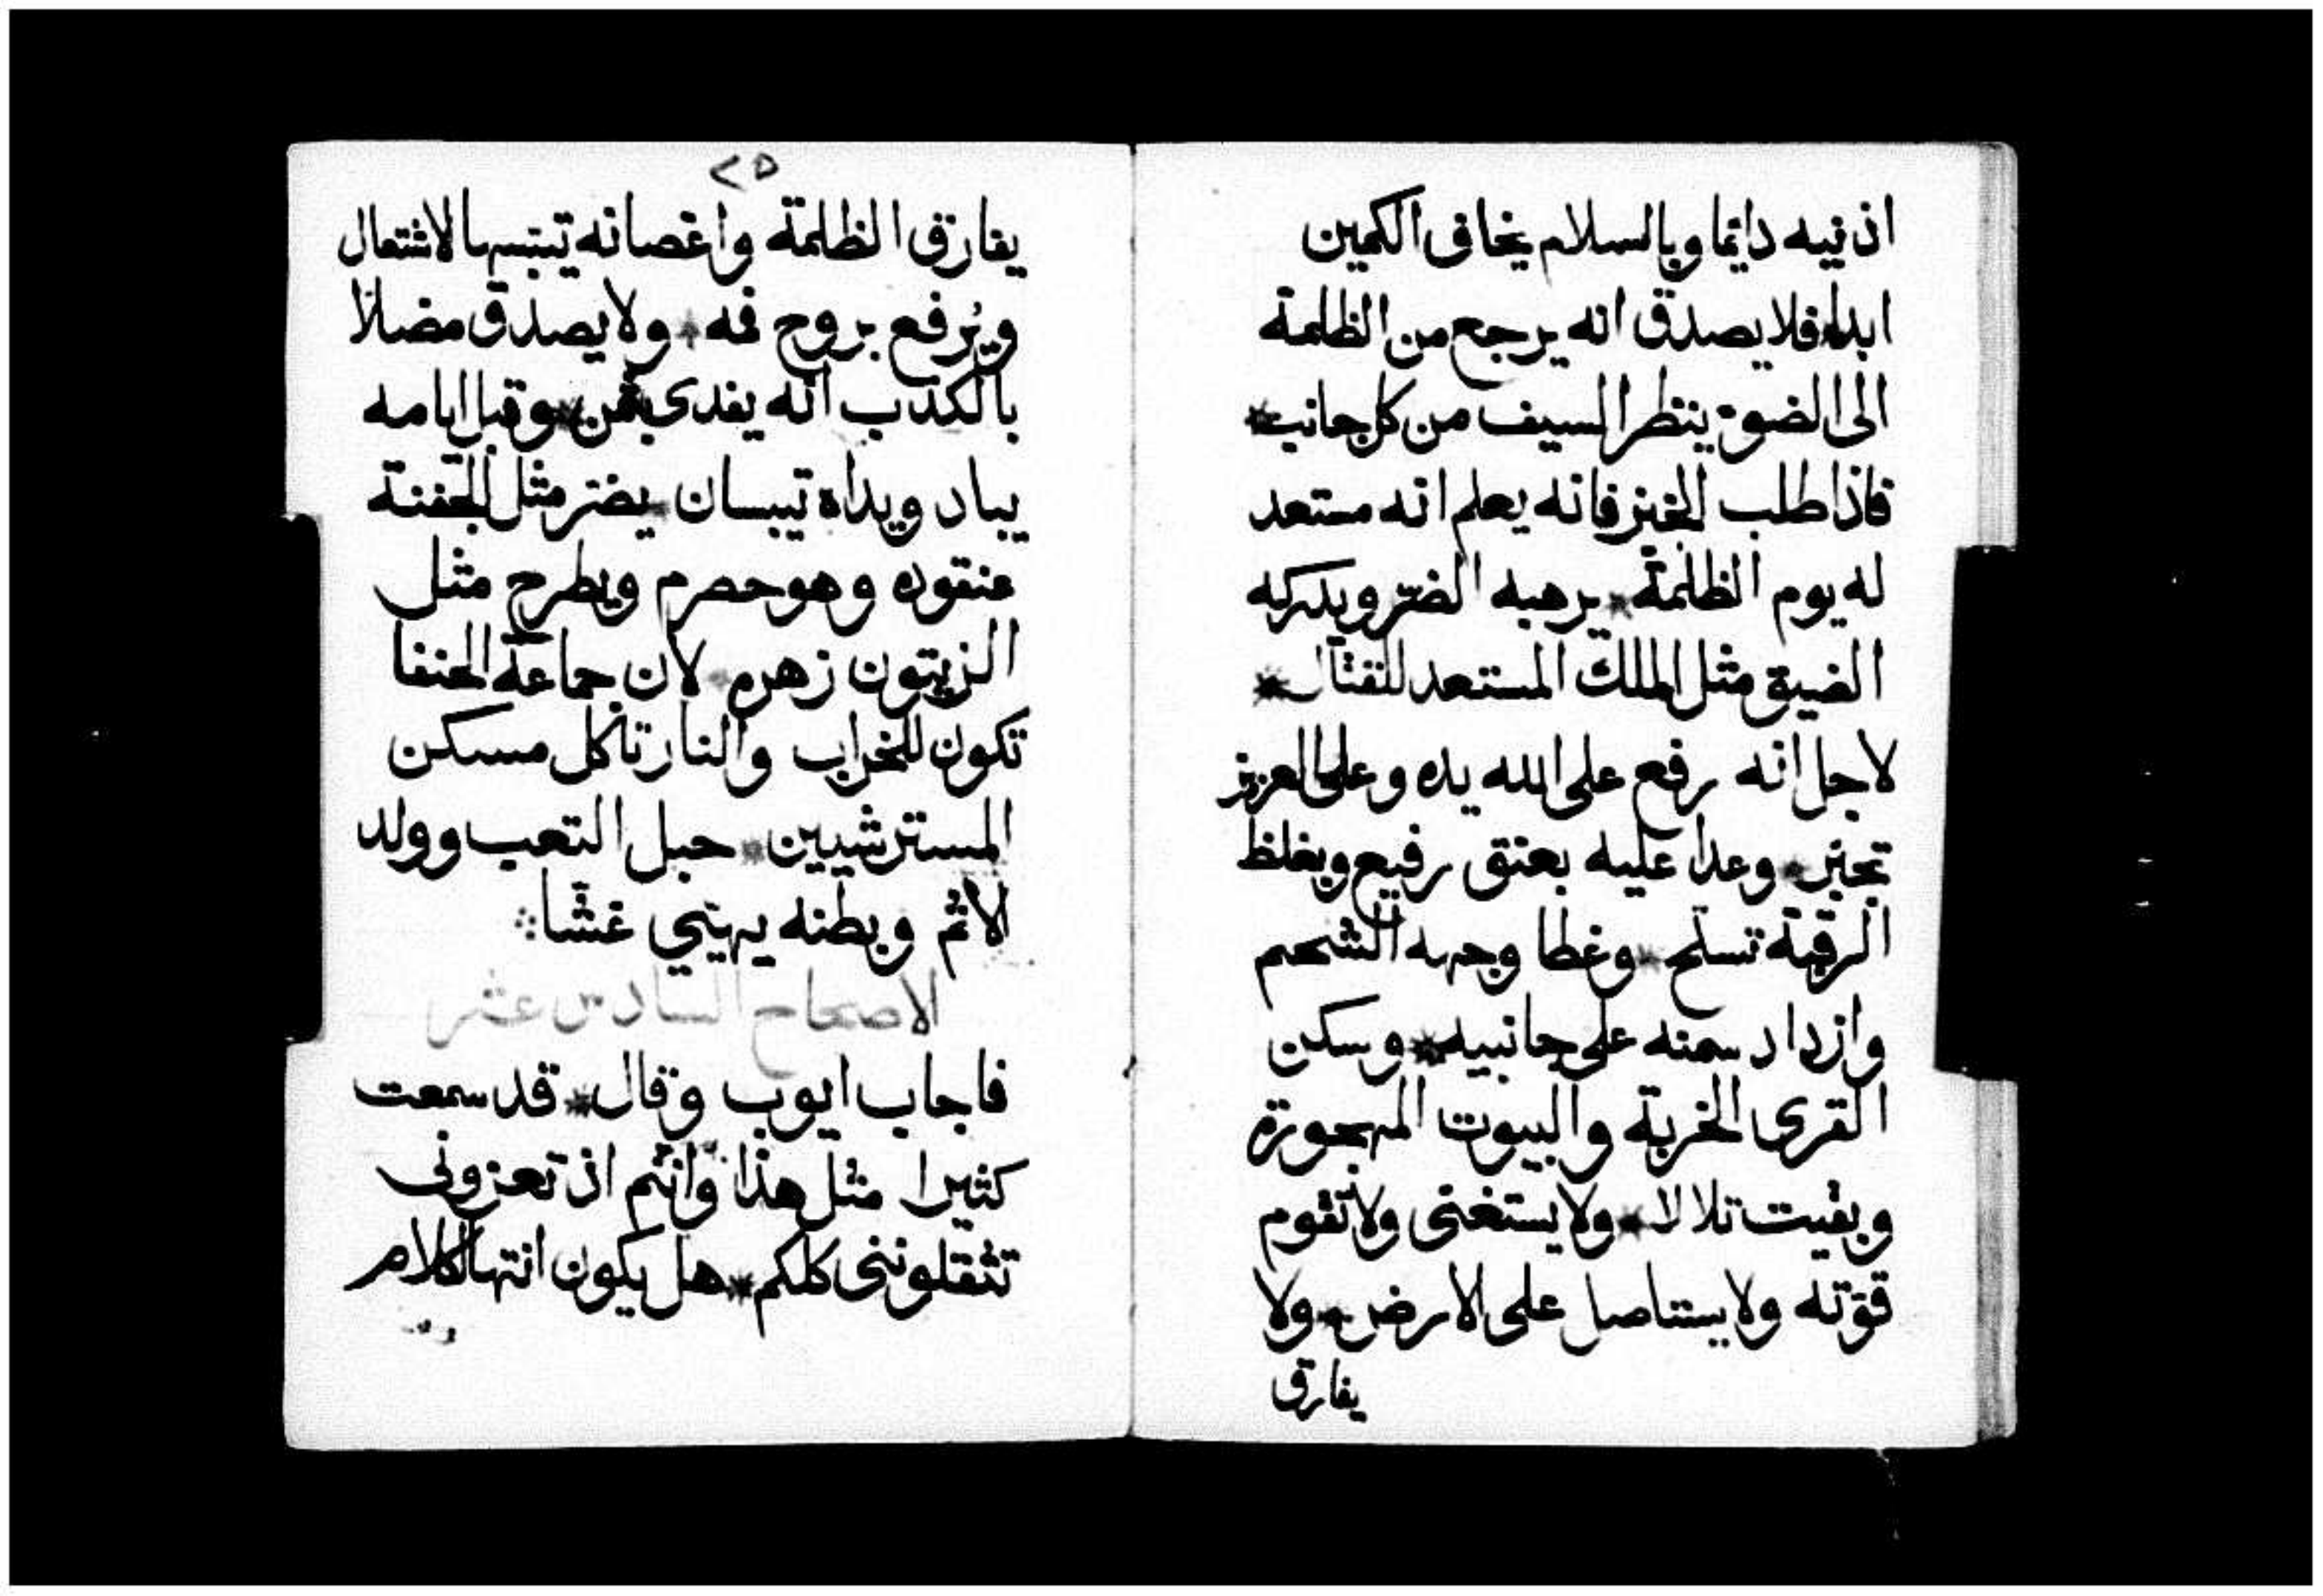 اذنيه دائما وبالسلام يخاف الكمين
ابداء فلا يصدق انه يرجع من الظلمة
الى الضوء ينظر السيف من كل جانب *
فاذا طلب الخبز فانه يعلم انه مستعد
له يوم الظلمة * يرهبه الضر ويدركه
الضيق مثل الملك المستعد للقتال *
لاجل انه رفع على الله يده وعلى العزيز
تجبر * وعدا عليه بعنق رفيع وبغلظ
الرقبة تسلح * وغطا وجهه الشحم
وازداد سمنه على جانبيه * وسكن
القرى الخربة والبيوت المهجورة
وبقيت تلالا * ولا يستغنى ولا تقوم
قوته ولا يستاصل على الارض * ولا
يفارق
٢٥
يفارق الظلمة واغصانه تيبسها الاشتعال
ويُرفع بروح فمه * ولا يصدق مضلا
بالكذب انه يفدى بثمن * وقبل ايامه
يباد ويداه تيبسان * يضر مثل الجفنة
عنقوده وهو حصرم ويطرح مثل
الزيتون زهره * لان جماعة الحنفا
تكون للخراب والنار تاكل مسكن
المسترشيين * حبل التعب وولد
الاثم وبطنه يهيي غشا
الاصحاح السادس عشر
فاجاب ايوب وقال * قد سمعت
كثيرا مثل هذا وانتم اذ تعزونى
تثقلوننى كلكم * هل يكون انتها لكلام